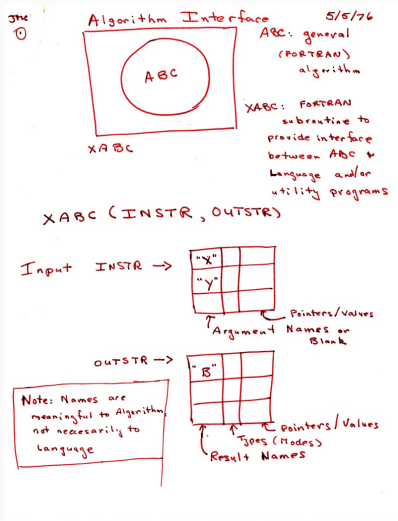 JMC
①
Algorithm Interface
5/5/76
ABC
XABC
ABC: general
(FORTRAN)
algorithm
XABC: FORTRAN
subroutine to
provide interface
between ABC &
Language and/or
utility programs
XABC (INSTR, OUTSTR)
Input INSTR →
"X"
"Y"
Pointers/Values
Argument Names or
Blank
OUTSTR →
"B"
Pointers/Values
Types (Modes)
Result Names
Note: Names are
meaningful to Algorithm,
not necesarily to
Language